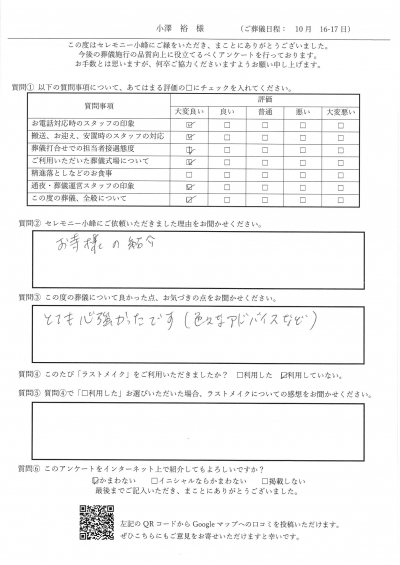 小澤 裕 様 （ご葬儀日程： 10月 16-17日）
この度はセレモニー小峰にご縁をいただき、まことにありがとうございました。
今後の葬儀施行の品質向上に役立てるべくアンケートを行っております。
お手数とは思いますが、何卒ご協力くださいますようお願い申し上げます。
質問① 以下の質問事項について、あてはまる評価の□にチェックを入れてください。
質問事項 評価
大変良い 良い 普通 悪い 大変悪い
お電話対応時のスタッフの印象 ☑ □ □ □ □
搬送、お迎え、安置時のスタッフの対応 ☑ □ □ □ □
葬儀打合せでの担当者接遇態度 ☑ □ □ □ □
ご利用いただいた葬儀式場について ☑ □ □ □ □
精進落としなどのお食事 □ □ □ □ □
通夜・葬儀運営スタッフの印象 ☑ □ □ □ □
この度の葬儀、全般について ☑ □ □ □ □
質問② セレモニー小峰にご依頼いただきました理由をお聞かせください。
お寺様の紹介
質問③ この度の葬儀について良かった点、お気づきの点をお聞かせください。
とても心強かったです（色々なアドバイスなど）
質問④ このたび「ラストメイク」をご利用いただきましたか？ □利用した ☑利用していない。
質問⑤ 質問④で「□利用した」お選びいただいた場合、ラストメイクについての感想をお聞かせください。
質問⑥ このアンケートをインターネット上で紹介してもよろしいですか？
☑かまわない □イニシャルならかまわない □掲載しない
最後までご記入いただき、まことにありがとうございました。
左記のQRコードからGoogleマップへの口コミを投稿いただけます。
ぜひこちらにもご意見をお寄せいただけますと幸いです。